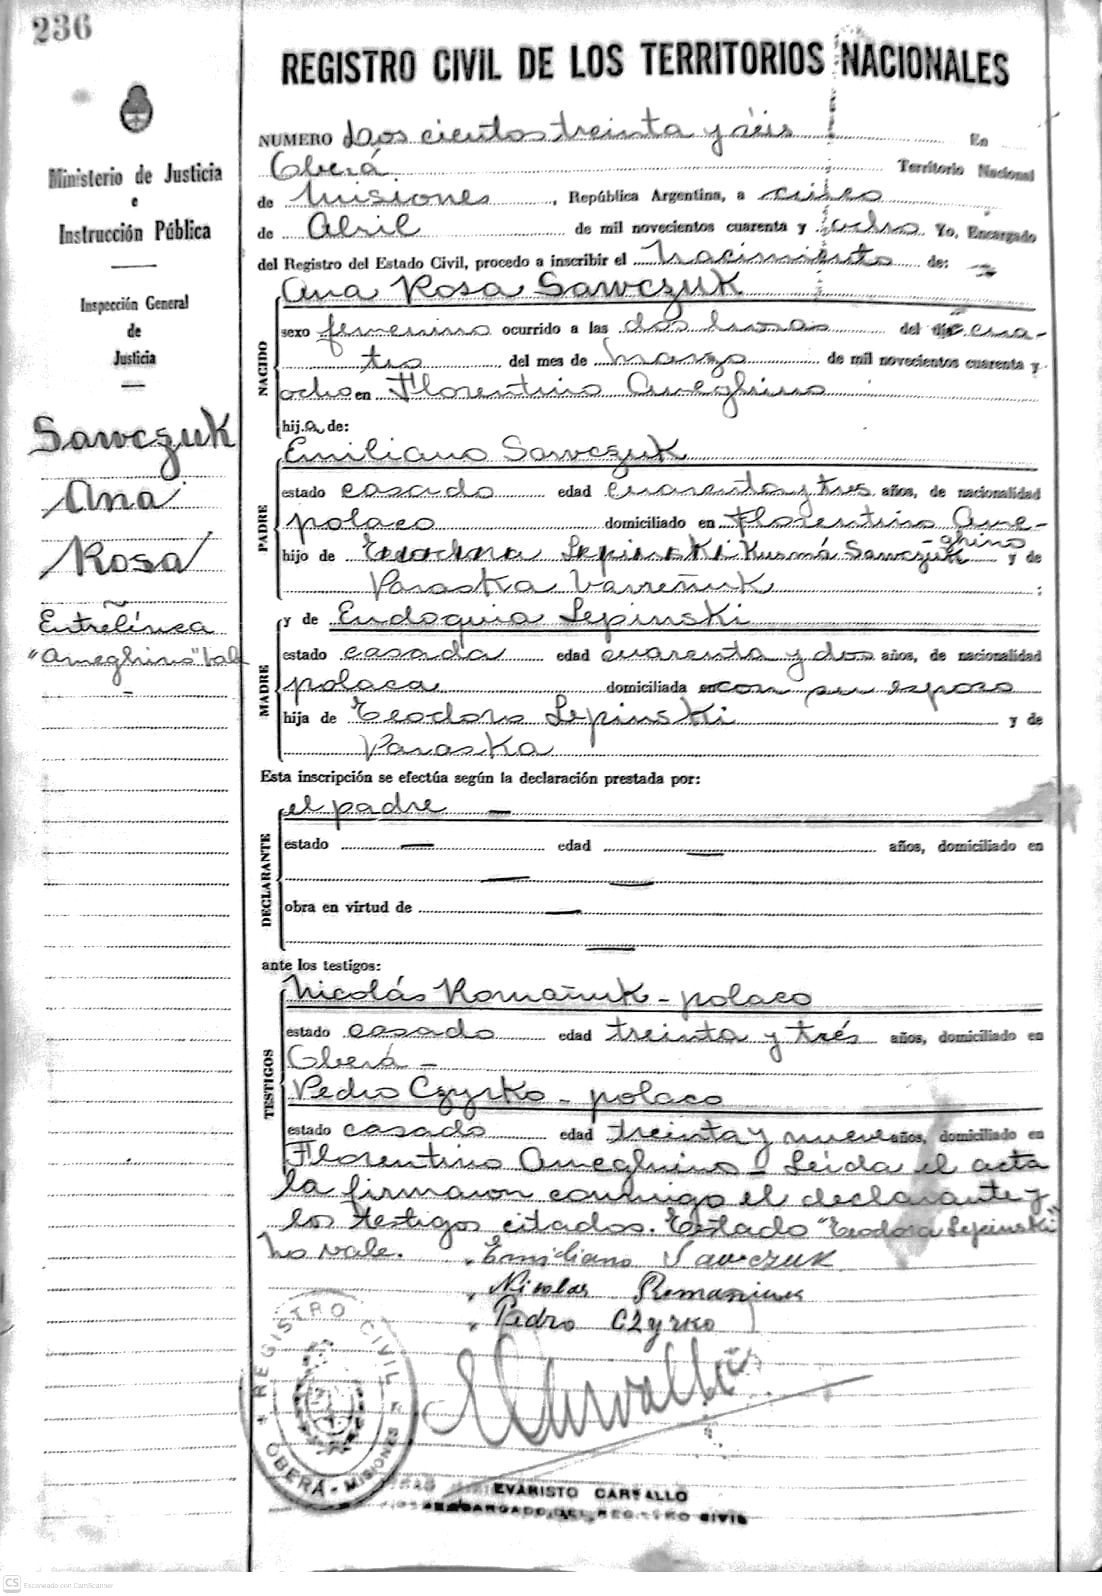 236
REGISTRO CIVIL DE LOS TERRITORIOS NACIONALES
Ministerio de Justicia
e
Instrucción Pública
Inspección General
de
Justicia
Sawczuk
Ana
Rosa
Entrelínea
"Ameghino" vale
NUMERO Dos cientos treinta y séis En
Oberá Territorio Nacional
de Misiones, República Argentina, a cinco
de Abril de mil novecientos cuarenta y ocho Yo, Encargado
del Registro del Estado Civil, procedo a inscribir el nacimiento de:
NACIDO
Ana Rosa Sawczuk
sexo femenino ocurrido a las dos horas del día cua-
tro del mes de marzo de mil novecientos cuarenta y
ocho en Florentino Ameghino
hij.a de:
PADRE
Emiliano Sawczuk
estado casado edad cuarenta y tres años, de nacionalidad
polaco domiciliado en Florentino Ame-
ghino
hijo de Teodora Lepinski Kusmá Sawczuk y de
Paraska ;
MADRE
y de Eudoquia Lepinski
estado casada edad cuarenta y dos años, de nacionalidad
polaca domiciliada en con su esposo
hija de Teodoro Lepinski y de
Paraska
Esta inscripción se efectúa según la declaración prestada por:
DECLARANTE
el padre —
estado — edad — años, domiciliado en
— —
obra en virtud de —
—
ante los testigos:
TESTIGOS
Nicolás Romañuk - polaco
estado casado edad treinta y trés años, domiciliado en
Oberá -
Pedro Czyrko - polaco
estado casado edad treinta y nueve años, domiciliado en
Florentino Ameghino - Leida el acta
la firmaron conmigo el declarante y
los testigos citados. Testado "Teodora Lepinski"
no vale. Emiliano Sawczuk
Nicolas Romaniuk
Pedro Czyrko
REGISTRO CIVIL
OBERÁ - MISIONES
EVARISTO CARVALLO
ENCARGADO DEL REGISTRO CIVIL
CS Escaneado con CamScanner